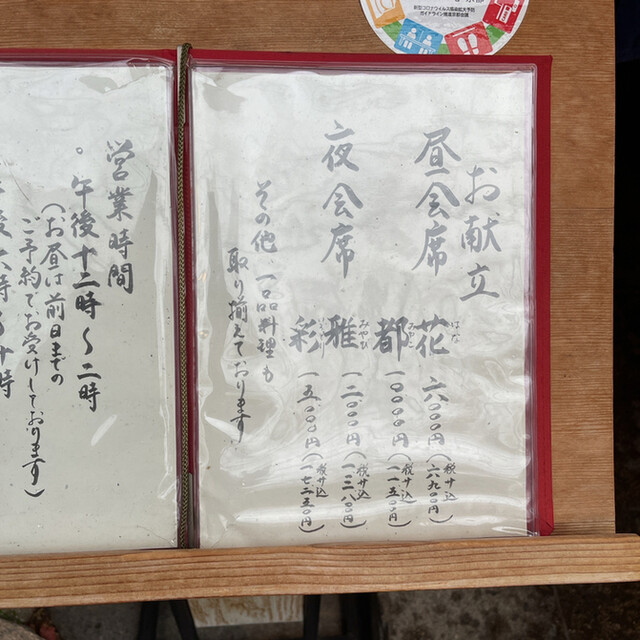 新型コロナウイルス感染拡大予防
ガイドライン推進京都会議
お献立
昼会席 花 六〇〇〇円(税サ込 六九〇〇円)
都 一〇〇〇〇円(税サ込 一一五〇〇円)
夜会席 雅 一二〇〇〇円(税サ込 一三八〇〇円)
彩 一五〇〇〇円(税サ込 一七二五〇円)
その他、一品料理も
取り揃えております。
営業時間
。午後十二時〜二時
(お昼は前日までの
ご予約でお受けしております)